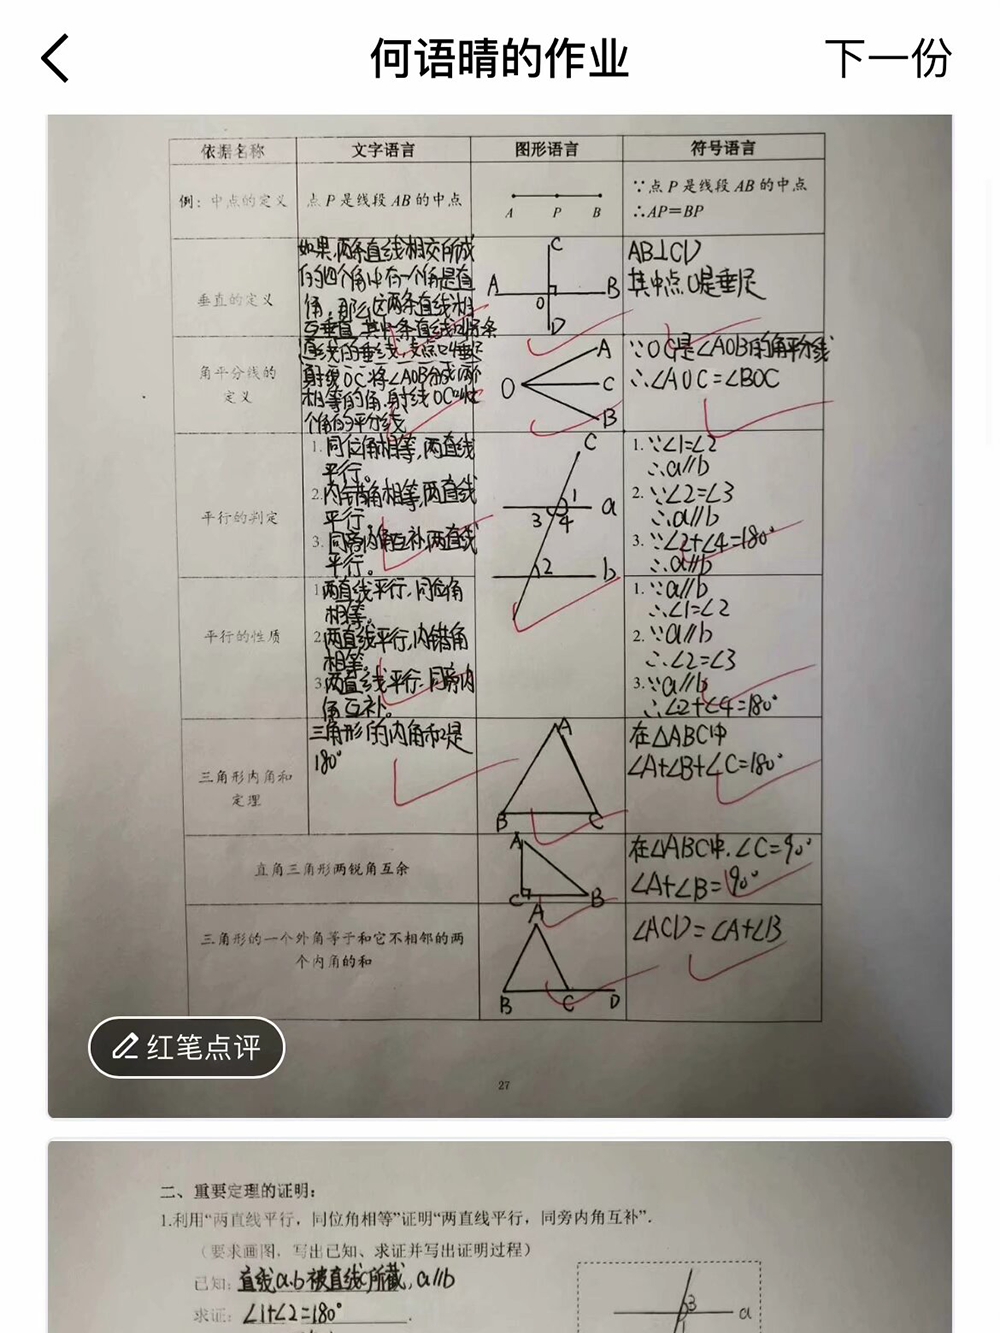 何语晴的作业
下一份
依据名称 文字语言 图形语言 符号语言
例：中点的定义
点 P 是线段 AB 的中点
A P B
∵点 P 是线段 AB 的中点
∴AP＝BP
垂直的定义
如果两条直线相交所成
的四个角中有一个角是直
角，那么这两条直线相
互垂直，其中一条直线叫另条
直线的垂线，交点叫垂足
A B C D O
AB⊥CD
其中点O是垂足
角平分线的
定义
射线OC将∠AOB分成两个
相等的角，射线OC叫
个角的平分线
O A C B
∵OC是∠AOB的角平分线
∴∠AOC=∠BOC
平行的判定
1. 同位角相等，两直线
平行。
2. 内错角相等，两直线
平行。
3. 同旁内角互补，两直线
平行。
C
1 a
3 4
2 b
1. ∵∠1=∠2
∴a∥b
2. ∵∠2=∠3
∴a∥b
3. ∵∠2+∠4=180°
∴a∥b
平行的性质
1 两直线平行，同位角
相等。
2 两直线平行，内错角
相等。
3 两直线平行，同旁内
角互补。
1. ∵a∥b
∴∠1=∠2
2. ∵a∥b
∴∠2=∠3
3. ∵a∥b
∴∠2+∠4=180°
三角形内角和
定理
三角形的内角和是
180°
A
B C
在△ABC中
∠A+∠B+∠C=180°
直角三角形两锐角互余
A
C B
在△ABC中，∠C=90°
∠A+∠B=90°
三角形的一个外角等于和它不相邻的两
个内角的和
A
B C D
∠ACD=∠A+∠B
红笔点评
27
二、重要定理的证明：
1.利用“两直线平行，同位角相等”证明“两直线平行，同旁内角互补”.
（要求画图，写出已知、求证并写出证明过程）
已知：直线a.b被直线c所截，a∥b
求证：∠1+∠2=180°.
3 a